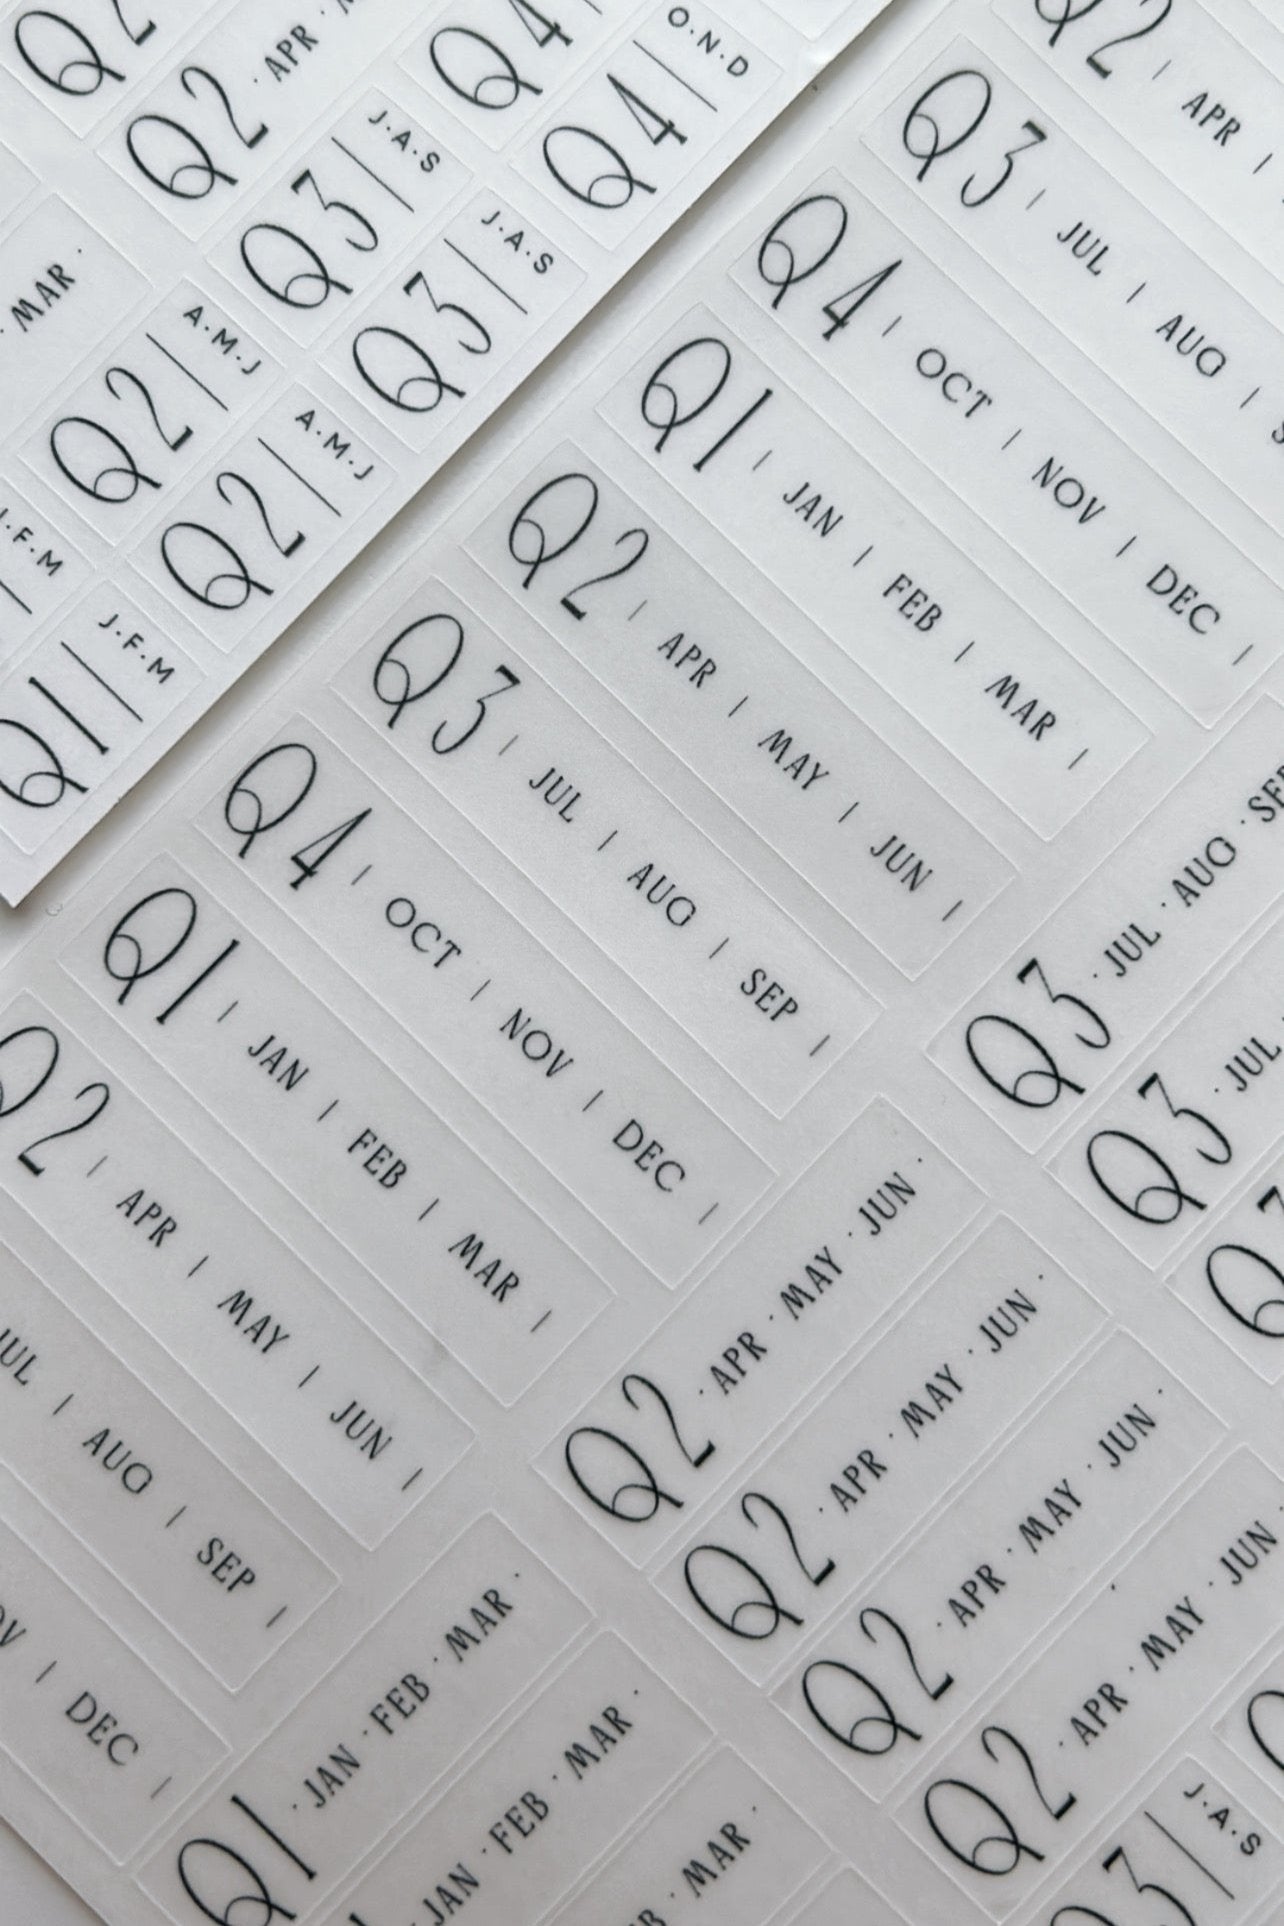 Q2
Q2 · APR ·
Q4
Q4 | O.N.D
Q3 | J.A.S
Q3 | J.A.S
· MAR ·
Q2 | A.M.J
Q2 | A.M.J
J.F.M
Q1 | J.F.M
Q2 | APR |
Q3 | JUL | AUG |
Q4 | OCT | NOV | DEC |
Q1 | JAN | FEB | MAR |
Q2 | APR | MAY | JUN |
Q3 | JUL | AUG | SEP |
Q4 | OCT | NOV | DEC |
Q1 | JAN | FEB | MAR |
Q2 | APR | MAY | JUN |
JUL | AUG | SEP |
| DEC |
Q3 · JUL · AUG · SEP
Q3 · JUL
Q2 · APR · MAY · JUN ·
Q2 · APR · MAY · JUN ·
Q2 · APR · MAY · JUN ·
Q2 · APR · MAY · JUN
Q1 · JAN · FEB · MAR ·
JAN · FEB · MAR ·
· MAR ·
Q3 | J.A.S